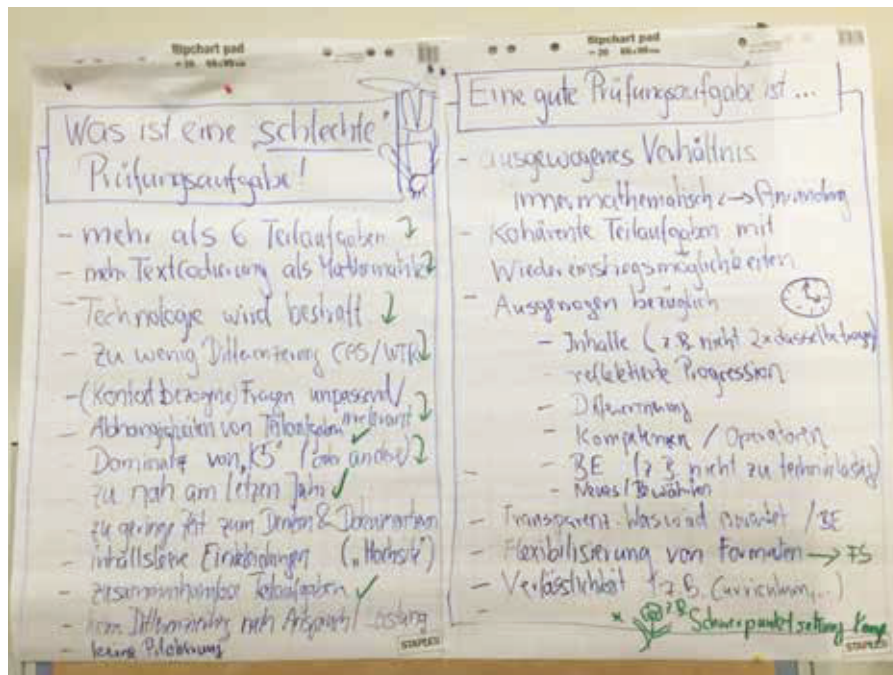 flipchart pad
flipchart pad
Was ist eine „schlechte“
Prüfungsaufgabe!
- mehr als 6 Teilaufgaben
- mehr Text(codierung als Mathematik
- Technologie wird bestraft
- Zu wenig Differenzierung CAS/WTR
- (Kontextbezogene) Fragen unpassend/
irrelevant
- Abhängigkeiten von Teilaufgaben ✓
- Dominanz von „K5“ (oder andere)
- zu nah am letzten Jahr ✓
- zu geringe Zeit zum Denken & Dokumentieren
- inhaltsleere Einkleidungen („Hochsitz“)
- zusammenhanglose Teilaufgaben ✓
- kein Differenzierung nach Anspruch/
- keine Pilotierung
STAPLES
Eine gute Prüfungsaufgabe ist ...
- ausgewogenes Verhältnis
innermathematisch <-> Anwendung
- Kohärente Teilaufgaben mit
Wiedereinstiegsmöglichkeiten
- Ausgewogen bezüglich
- Inhalte (z B nicht 2x dasselbe
- reflektierte Progression
- Differenzierung
- Kompetenzen / Operatoren
- BE (z B nicht zu
- Neues/Bewährtes
- Transparenz. Was wird erwartet /BE
- Flexibilisierung von Formaten -> FS
- Verlässlichkeit (z B. Curriculum,...)
z B Schwerpunktsetzung
STAPLES